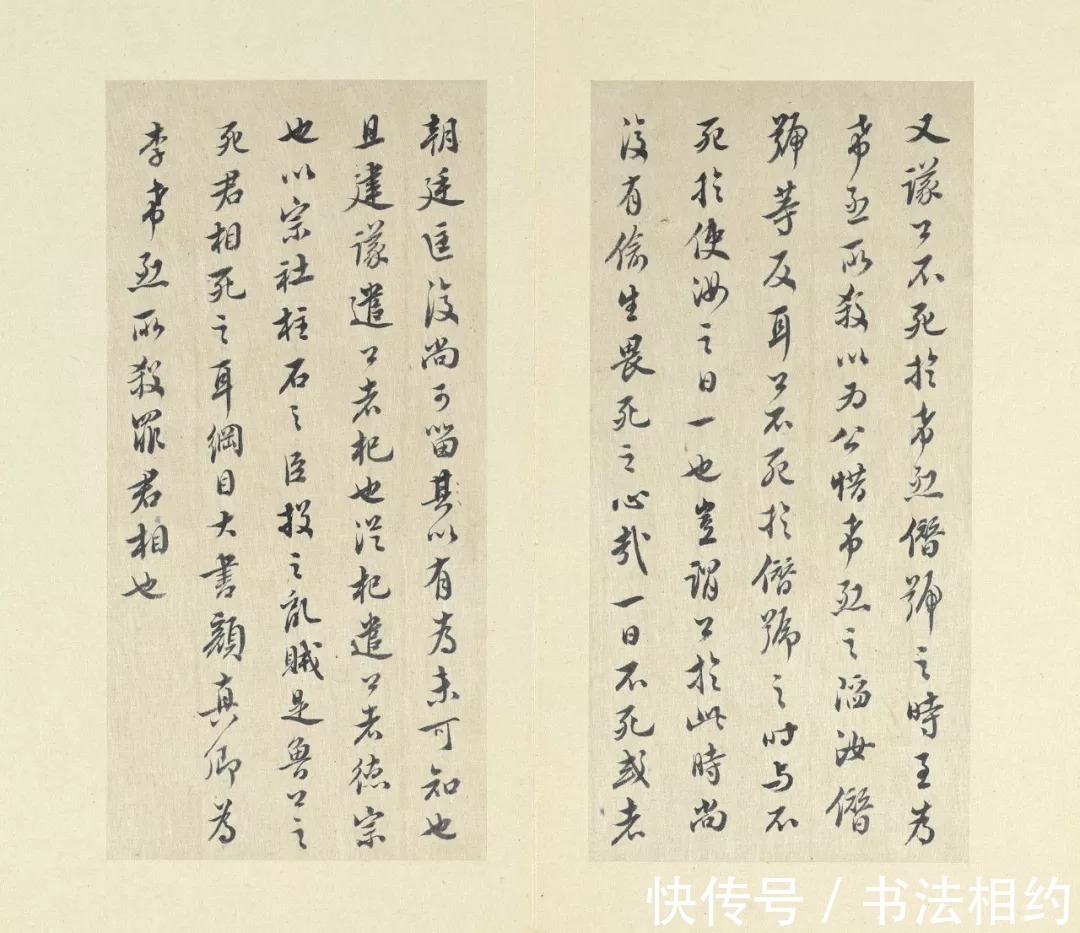 又議公不死於希烈僭號之時至為
希烈所殺以为公惜希烈之陷汝僭
號等反耳公不死於僭號之时与不
死於使汝之日一也豈謂公於此時尚
復有偷生畏死之心哉一日不死或者
朝廷匡復尚可留其以有為未可知也
且建議遣公者杞也從杞遣公者德宗
也以宗社柱石之臣投之亂賊是魯公之
死君相死之耳綱目大書顏真卿為
李希烈所殺罪君相也
快传号 / 书法相约